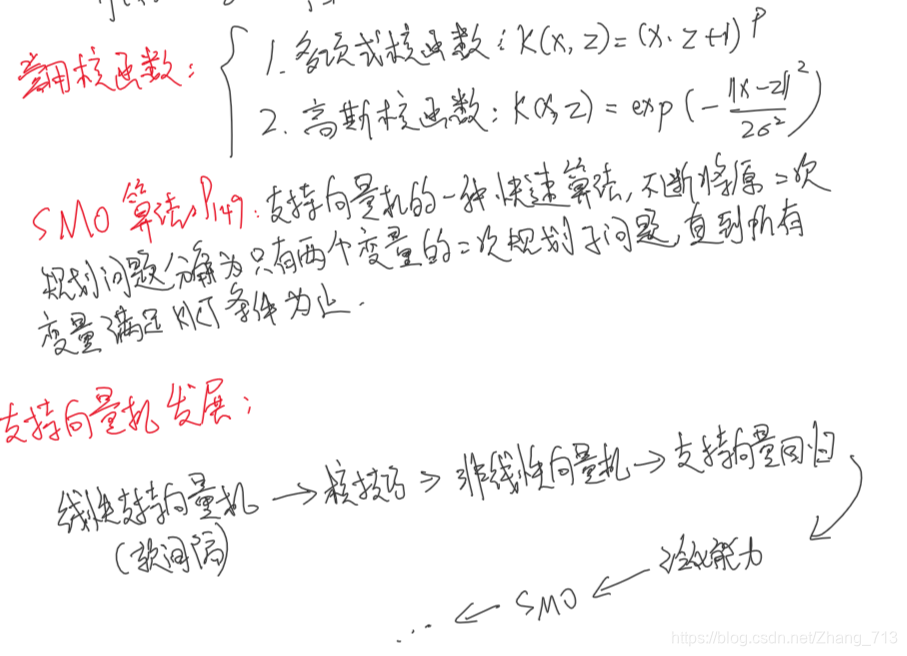 常用核函数:
1. 多项式核函数: K(x, z) = (x·z+1)^p
2. 高斯核函数: K(x, z) = exp(-||x-z||²/2σ²)
SMO 算法P149: 支持向量机的一种快速算法, 不断将原二次
规划问题分解为只有两个变量的二次规划子问题, 直到所有
变量满足KKT条件为止.
支持向量机发展:
线性支持向量机 → 核技巧 → 非线性向量机 → 支持向量回归
(软间隔)
泛化能力
... ← SMO ←
https://blog.csdn.net/Zhang_713